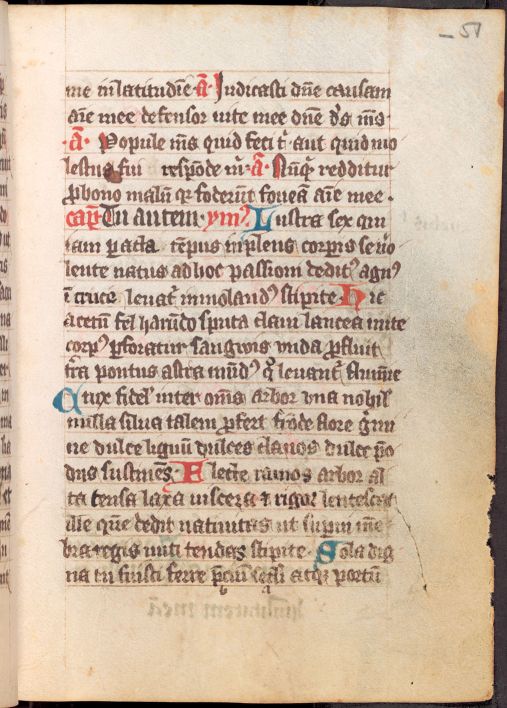 51
me in latitudīe · Ā · Iudicasti dn̄e causam
aīe mee defensor uite mee dn̄e ds̄ ms̄
· Ā · Popule ms̄ quid feci t̄ aut quid mo
lestus fui respōde m̄ · Ā · Nūq̄ redditur
ꝓ bono malū qr foderūt foueā aīe mee ·
cap̄ Tu autem · ymꝰ Lustra sex qui
iam ꝑacta tēpus inplens corporis se uo
lente natus ad hoc passioni dedit̉ agnꝰ
ī cruce leuat̉ immolandꝰ stipite Hic
acetū fel harūdo sputa claui lancea mite
corpꝰ ꝑforatur sanguis unda ꝓfluit
t̄ra pontus astra mūdꝰ q̊ leuant̉ flumīe
Crux fidel̉ inter om̄s arbor una nobil̉
nulla silua talem ꝓfert frōde flore g̉mi
ne dulce lignū dulces clauos dulce pō
dus sustinēs · Flecte ramos arbor al
ta tensa laxa uiscera ⁊ rigor lentescat
ille quē dedit natiuitas ut supni mē
bra regis miti tendas stipite · Sola dig
na tu fuisti ferre p̄ciū sc̄li atqꝫ portū